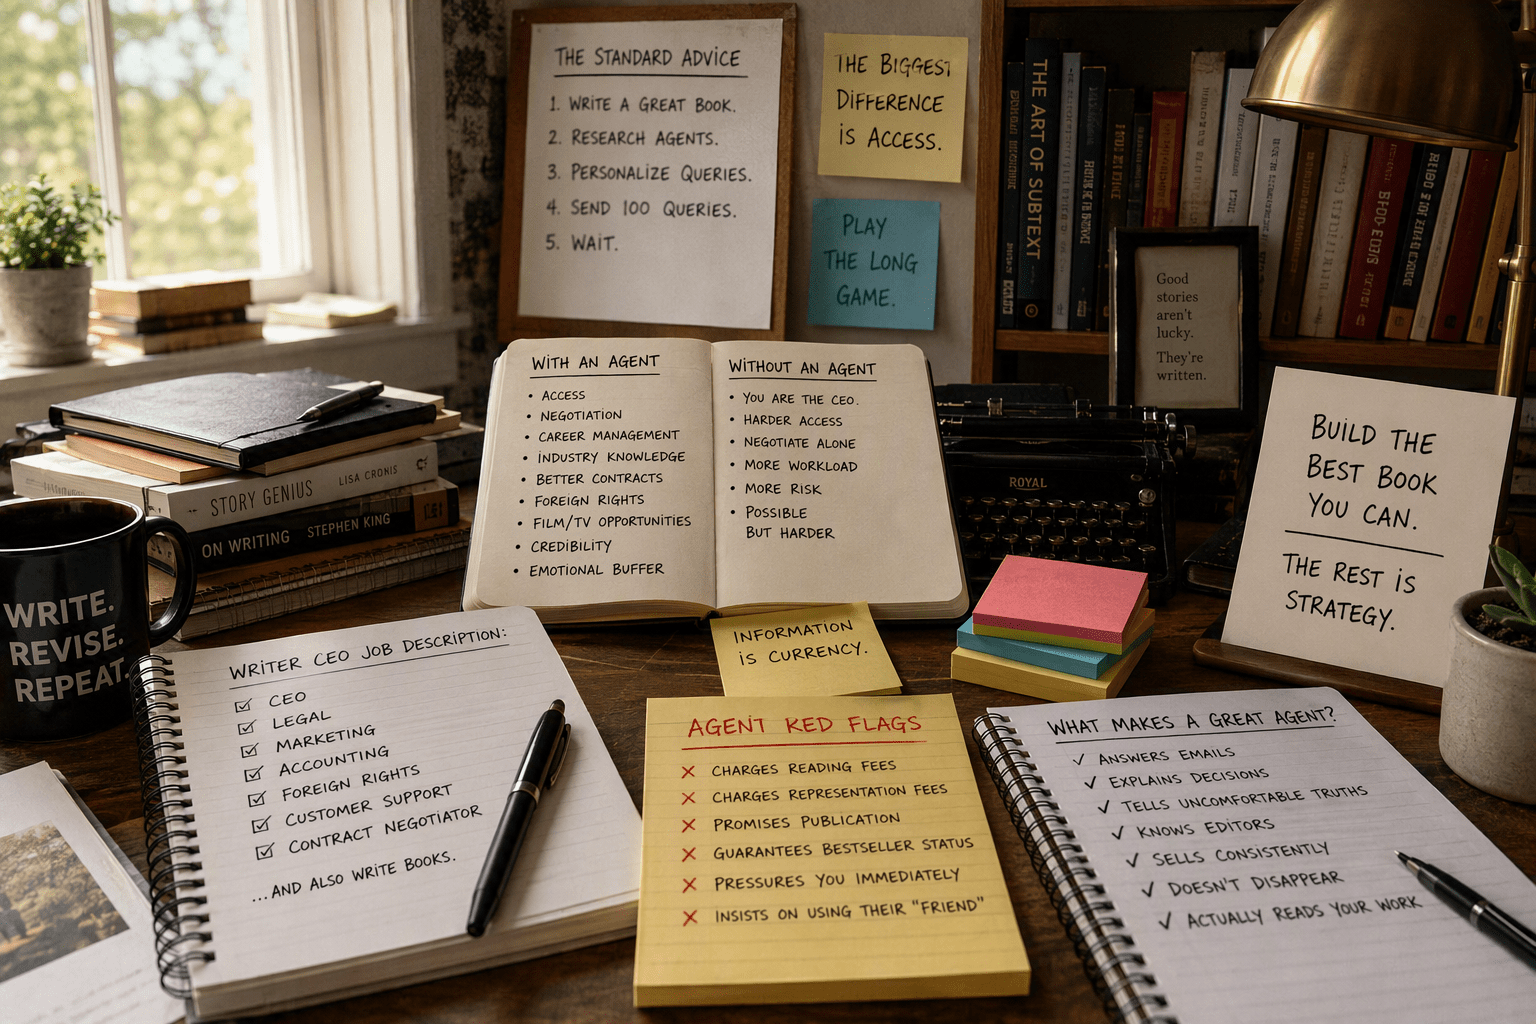 THE STANDARD ADVICE
1. WRITE A GREAT BOOK.
2. RESEARCH AGENTS.
3. PERSONALIZE QUERIES.
4. SEND 100 QUERIES.
5. WAIT.
THE BIGGEST
DIFFERENCE
IS ACCESS.
PLAY
THE LONG
GAME.
THE ART OF SUBTEXT
Good
stories
aren't
lucky.
They're
written.
WITH AN AGENT
• ACCESS
• NEGOTIATION
• CAREER MANAGEMENT
• INDUSTRY KNOWLEDGE
• BETTER CONTRACTS
• FOREIGN RIGHTS
• FILM/TV OPPORTUNITIES
• CREDIBILITY
• EMOTIONAL BUFFER
WITHOUT AN AGENT
• YOU ARE THE CEO.
• HARDER ACCESS
• NEGOTIATE ALONE
• MORE WORKLOAD
• MORE RISK
• POSSIBLE
BUT HARDER
ROYAL
BUILD THE
BEST BOOK
YOU CAN.
THE REST IS
STRATEGY.
STORY GENIUS LISA CRONIS
ON WRITING STEPHEN KING
WRITE.
REVISE.
REPEAT.
INFORMATION
IS CURRENCY.
WRITER CEO JOB DESCRIPTION:
☑ CEO
☑ LEGAL
☑ MARKETING
☑ ACCOUNTING
☑ FOREIGN RIGHTS
☑ CUSTOMER SUPPORT
☑ CONTRACT NEGOTIATOR
...AND ALSO WRITE BOOKS.
AGENT RED FLAGS
✗ CHARGES READING FEES
✗ CHARGES REPRESENTATION FEES
✗ PROMISES PUBLICATION
✗ GUARANTEES BESTSELLER STATUS
✗ PRESSURES YOU IMMEDIATELY
✗ INSISTS ON USING THEIR "FRIEND"
WHAT MAKES A GREAT AGENT?
✓ ANSWERS EMAILS
✓ EXPLAINS DECISIONS
✓ TELLS UNCOMFORTABLE TRUTHS
✓ KNOWS EDITORS
✓ SELLS CONSISTENTLY
✓ DOESN'T DISAPPEAR
✓ ACTUALLY READS YOUR WORK